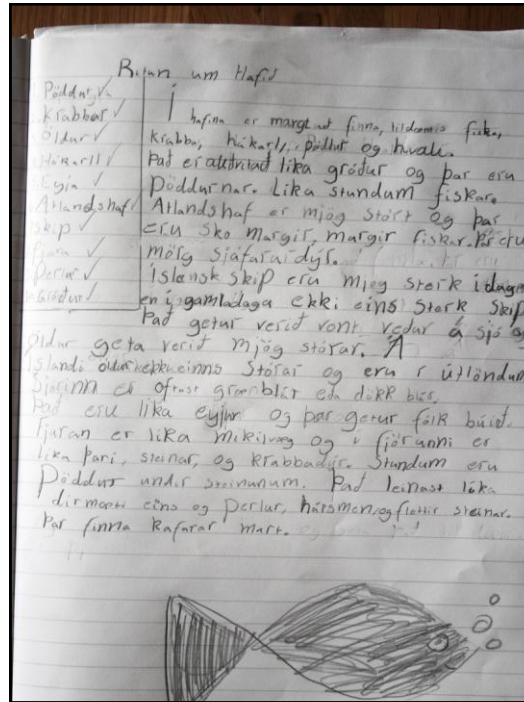 Ritun um Hafið
Pöddur ✓
Krabbar ✓
Öldur ✓
Hákarll ✓
Egia ✓
Atlandshaf ✓
Skip ✓
fjara ✓
Perlur ✓
Gróður ✓
Í hafinu er margt að finna, tildæmis fiska,
krabba, hákarl, pöddur og hvali.
Það er auðvitað líka gróður og þar eru
pöddurnar. Líka stundum fiskar.
Atlandshaf er mjög stórt og þar
eru sko margir, margir fiskar. Þar eru
mörg sjáfaraidýr.
Íslensk skip eru mjög sterk ídag
en í gamladaga ekki eins sterk skip
Það getur verið vont veður á sjó og
öldur geta verið mjög stórar. Á
íslandi öldur ekki einns stórar og eru í útlöndum
Sjóinn er oftast grænblár eða dökk blár.
Það eru líka eyjur og þar getur fólk búið.
Fjaran er líka mikilvæg og í fjörunni er
líka þari, steinar, og krabbadýr. Stundum eru
pöddur undir steinunum. Það leinast líka
dirmæti eins og perlur, hálsmen, og flottir steinar.
Þar finna kafarar mart.